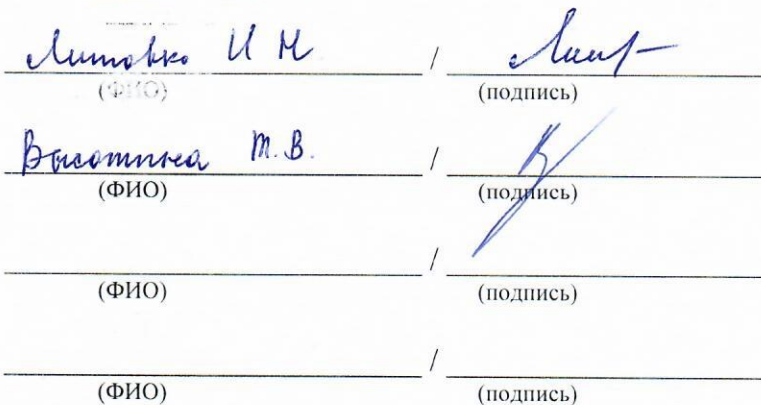 Литовко И Н /
(ФИО) (подпись)
Высотина Т.В. /
(ФИО) (подпись)
/
(ФИО) (подпись)
/
(ФИО) (подпись)